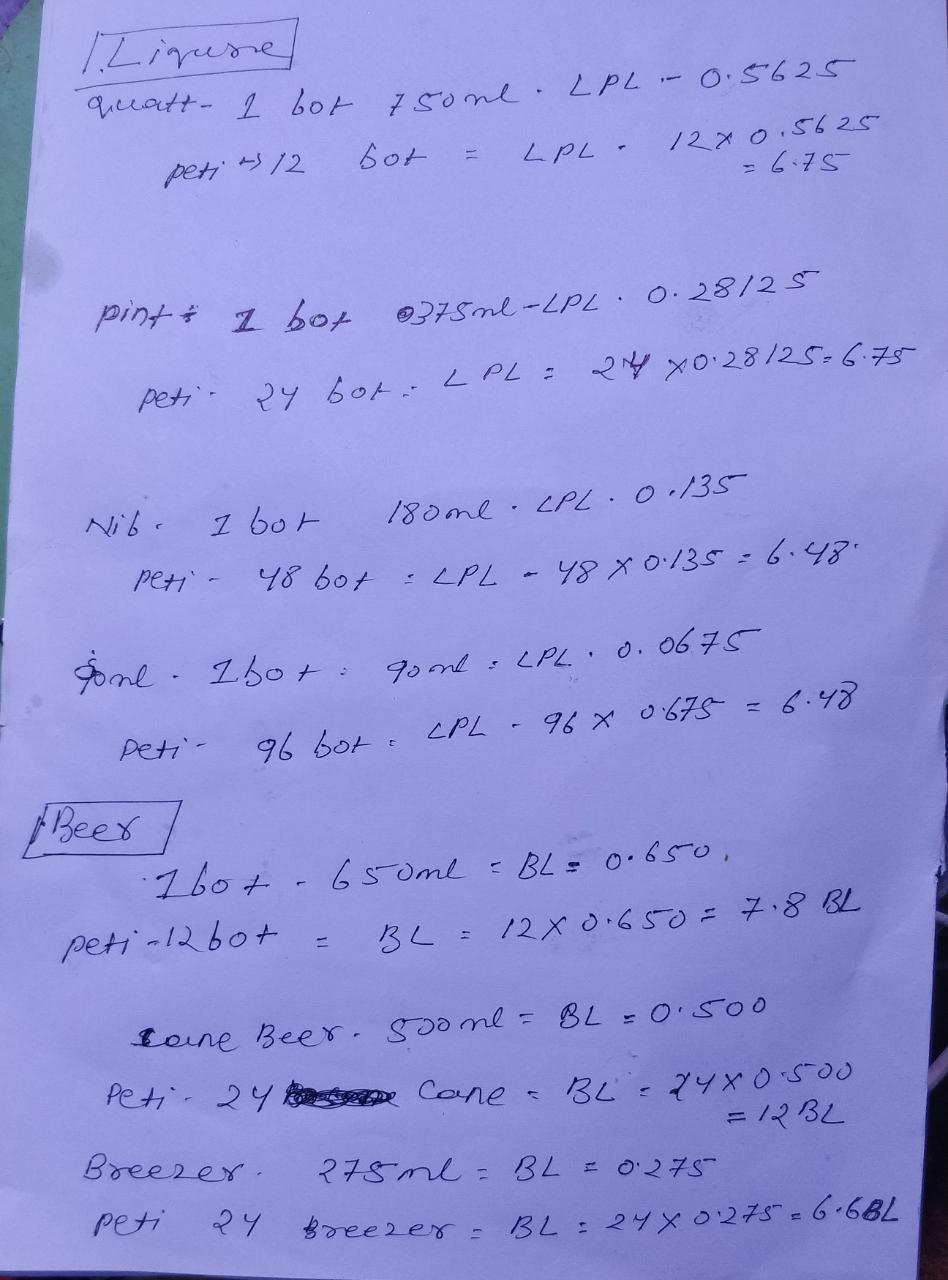 1. Liqure
quatt - 1 bot 750ml. LPL - 0.5625
peti → 12 bot = LPL. 12 x 0.5625
= 6.75
pint : 1 bot 375ml - LPL. 0.28125
peti - 24 bot : LPL = 24 x 0.28125 = 6.75
Nib. 1 bot 180ml. LPL. 0.135
peti - 48 bot : LPL - 48 x 0.135 = 6.48
90ml. 1 bot : 90ml : LPL. 0.0675
peti - 96 bot : LPL - 96 x 0.675 = 6.48
Beer
1 bot - 650ml = BL = 0.650.
peti - 12 bot = BL = 12 x 0.650 = 7.8 BL
cane Beer. 500ml = BL = 0.500
Peti - 24 Cane = BL = 24 x 0.500
= 12 BL
Breezer. 275ml = BL = 0.275
peti 24 Breezer = BL = 24 x 0.275 = 6.6BL